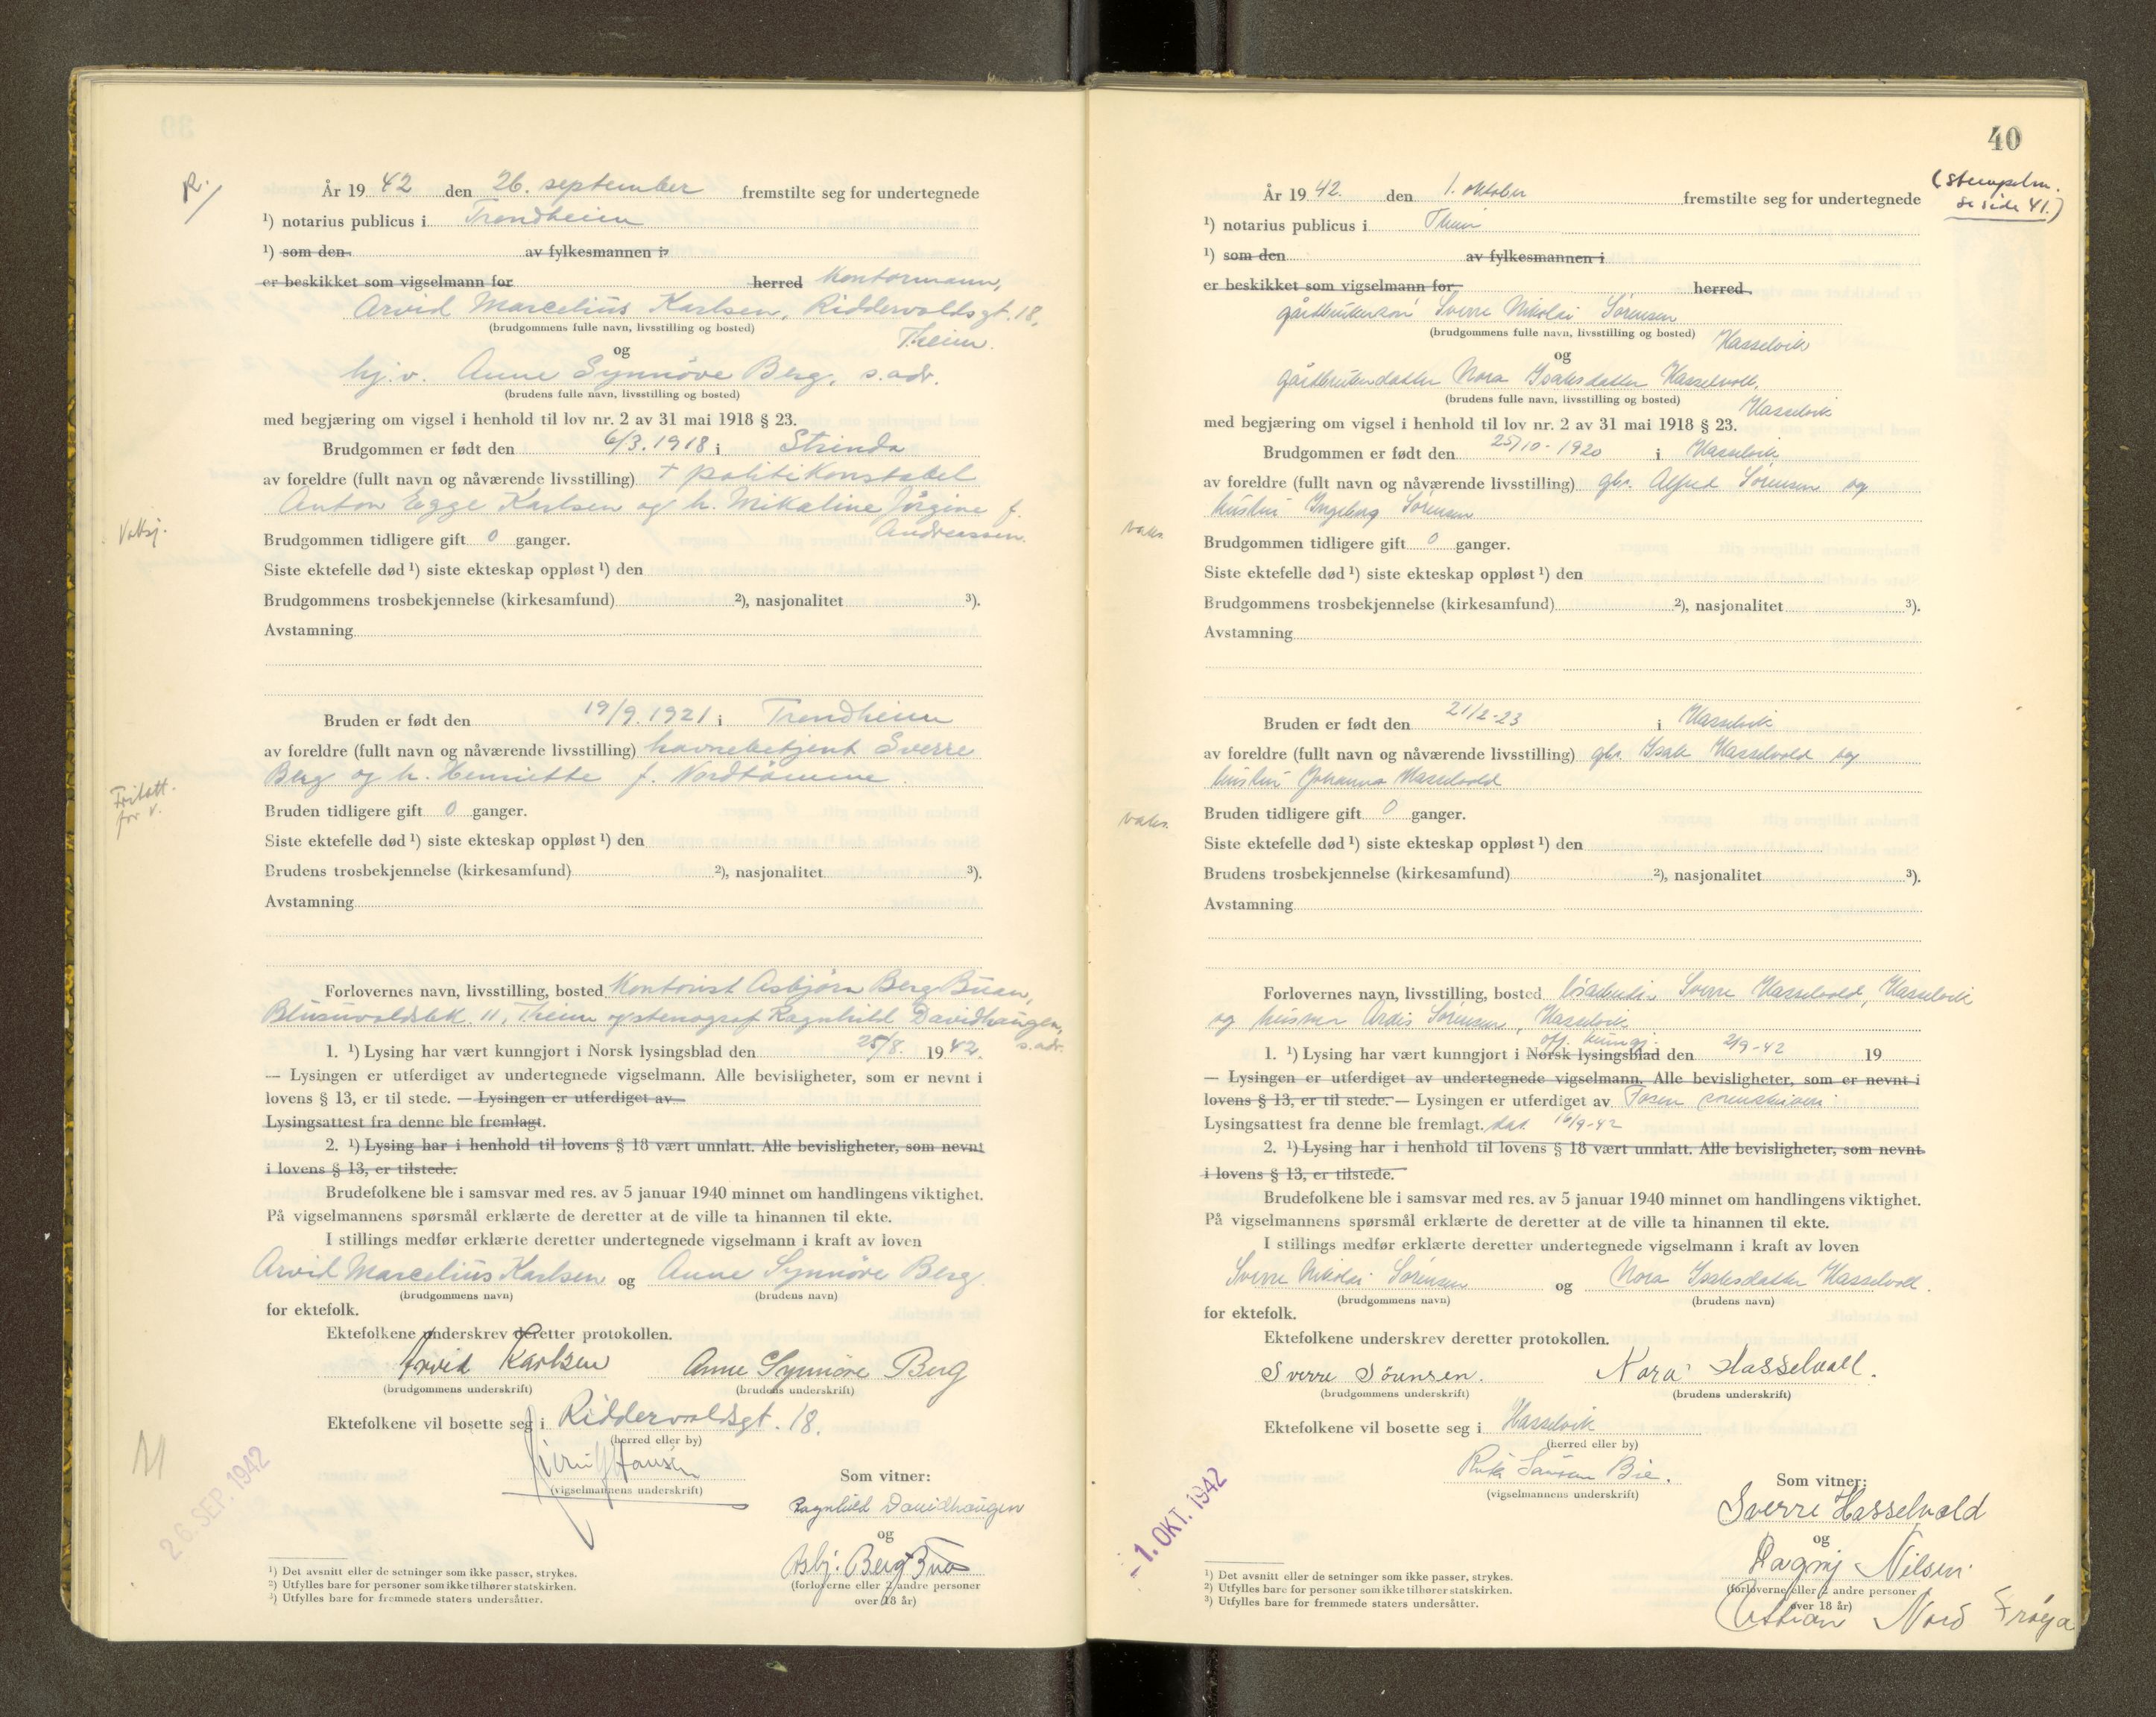 R./
År 19 42 den 26. september fremstilte seg for undertegnede
¹) notarius publicus i Trondheim
¹) som den av fylkesmannen i
er beskikket som vigselmann for herred Kontormann,
Arvid Marcelius Karlsen, Riddervoldsgt. 18,
(brudgommens fulle navn, livsstilling og bosted)
T.heim.
og
hj.v. Anne Synnöve Berg, s.adr.
(brudens fulle navn, livsstilling og bosted)
med begjæring om vigsel i henhold til lov nr. 2 av 31 mai 1918 § 23.
Brudgommen er født den 6/3. 1918 i Strinda
av foreldre (fullt navn og nåværende livsstilling) + politikonstabel
Anton Egge Karlsen og h. Mikaline Jörgine f.
Andreassen.
Vaksj.
Brudgommen tidligere gift 0 ganger.
Siste ektefelle død ¹) siste ekteskap oppløst ¹) den
Brudgommens trosbekjennelse (kirkesamfund) ²), nasjonalitet ³).
Avstamning
Bruden er født den 19/9. 1921 i Trondheim
av foreldre (fullt navn og nåværende livsstilling) havnebetjent Sverre
Berg og h. Henriette f. Nordtömme.
Fritatt.
for v.
Bruden tidligere gift 0 ganger.
Siste ektefelle død ¹) siste ekteskap oppløst ¹) den
Brudens trosbekjennelse (kirkesamfund) ²), nasjonalitet ³).
Avstamning
Forlovernes navn, livsstilling, bosted Kontorist Asbjörn Berg Buan,
11, T.heim og stenograf Ragnhild Davidhaugen,
s.adr.
1. ¹) Lysing har vært kunngjort i Norsk lysingsblad den 25/8. 19 42.
— Lysingen er utferdiget av undertegnede vigselmann. Alle bevisligheter, som er nevnt i
lovens § 13, er til stede. — Lysingen er utferdiget av
Lysingsattest fra denne ble fremlagt.
2. ¹) Lysing har i henhold til lovens § 18 vært unnlatt. Alle bevisligheter, som nevnt
i lovens § 13, er tilstede.
Brudefolkene ble i samsvar med res. av 5 januar 1940 minnet om handlingens viktighet.
På vigselmannens spørsmål erklærte de deretter at de ville ta hinannen til ekte.
I stillings medfør erklærte deretter undertegnede vigselmann i kraft av loven
Arvid Marcelius Karlsen og Anne Synnöve Berg.
(brudgommens navn) (brudens navn)
for ektefolk.
Ektefolkene underskrev deretter protokollen.
Arvid Karlsen Anne Synnöve Berg
(brudgommens underskrift) (brudens underskrift)
Ektefolkene vil bosette seg i Riddervoldsgt. 18.
(herred eller by)
Hansen
(vigselmannens underskrift)
26. SEP. 1942
Som vitner:
Ragnhild Davidhaugen
og
Asbj. Berg Bua
(forloverne eller 2 andre personer
over 18 år)
¹) Det avsnitt eller de setninger som ikke passer, strykes.
²) Utfylles bare for personer som ikke tilhører statskirken.
³) Utfylles bare for fremmede staters undersåtter.
40
(stempelm.
se side 41.)
År 19 42. den 1. oktober fremstilte seg for undertegnede
¹) notarius publicus i Theim
¹) som den av fylkesmannen i
er beskikket som vigselmann for herred.
gårdbrukersön Sverre Nikolai Sörensen
(brudgommens fulle navn, livsstilling og bosted)
Hasselvik
og
gårdbrukerdatter Nora Isaksdatter Hasselvoll,
(brudens fulle navn, livsstilling og bosted)
Hasselvik
med begjæring om vigsel i henhold til lov nr. 2 av 31 mai 1918 § 23.
Brudgommen er født den 25/10-1920 i Hasselvik
av foreldre (fullt navn og nåværende livsstilling) gbr. Alfred Sörensen og
hustru Ingeborg Sörensen
vaks.
Brudgommen tidligere gift 0 ganger.
Siste ektefelle død ¹) siste ekteskap oppløst ¹) den
Brudgommens trosbekjennelse (kirkesamfund) ²), nasjonalitet ³).
Avstamning
Bruden er født den 21/2-23 i Hasselvik
av foreldre (fullt navn og nåværende livsstilling) gbr. Isak Hasselvold og
hustru Johanna Hasselvold
vaks.
Bruden tidligere gift 0 ganger.
Siste ektefelle død ¹) siste ekteskap oppløst ¹) den
Brudens trosbekjennelse (kirkesamfund) ²), nasjonalitet ³).
Avstamning
Forlovernes navn, livsstilling, bosted Sverre Hasselvold, Hasselvik
og husmor Ardis Sörensen, Hasselvik
off. kunngj.
1. ¹) Lysing har vært kunngjort i Norsk lysingsblad den 2/9-42 19
— Lysingen er utferdiget av undertegnede vigselmann. Alle bevisligheter, som er nevnt i
lovens § 13, er til stede. — Lysingen er utferdiget av Fosen sorenskriveri
Lysingsattest fra denne ble fremlagt. dat 16/9-42
2. ¹) Lysing har i henhold til lovens § 18 vært unnlatt. Alle bevisligheter, som nevnt
i lovens § 13, er tilstede.
Brudefolkene ble i samsvar med res. av 5 januar 1940 minnet om handlingens viktighet.
På vigselmannens spørsmål erklærte de deretter at de ville ta hinannen til ekte.
I stillings medfør erklærte deretter undertegnede vigselmann i kraft av loven
Sverre Nikolai Sörensen og Nora Isaksdatter Hasselvoll.
(brudgommens navn) (brudens navn)
for ektefolk.
Ektefolkene underskrev deretter protokollen.
Sverre Sörensen. Nora Hasselvoll.
(brudgommens underskrift) (brudens underskrift)
Ektefolkene vil bosette seg i Hasselvik
(herred eller by)
Bie.
(vigselmannens underskrift)
-1. OKT. 1942
Som vitner:
Sverre Hasselvold
og
Dagny Nilsen
(forloverne eller 2 andre personer
over 18 år)
Nord Fröya
¹) Det avsnitt eller de setninger som ikke passer, strykes.
²) Utfylles bare for personer som ikke tilhører statskirken.
³) Utfylles bare for fremmede staters undersåtter.